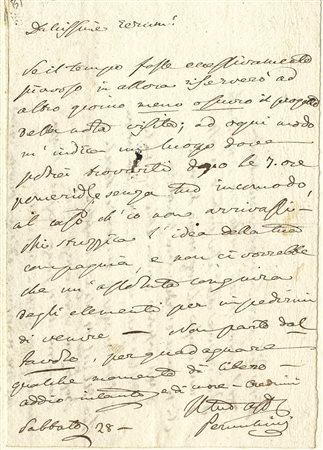 Se il tempo fosse eccessivamente
piovoso in allora riserverò ad
altro giorno meno oscuro il progetto
della nota visita; ad ogni modo
m'indica un luogo dove
potrei trovarti dopo le 7. ore
pomerid.e senza tuo incomodo,
al caso ch'io non arrivassi
l'idea della tua
compagnia, e non ci vorrebbe
che un'assoluta congiura
degli elementi per impedirmi
di venire — Non parto dal
per guadagnare
qualche momento di libero —
addio intanto, e di core — credimi
Il tuo
Sabbato 28 —